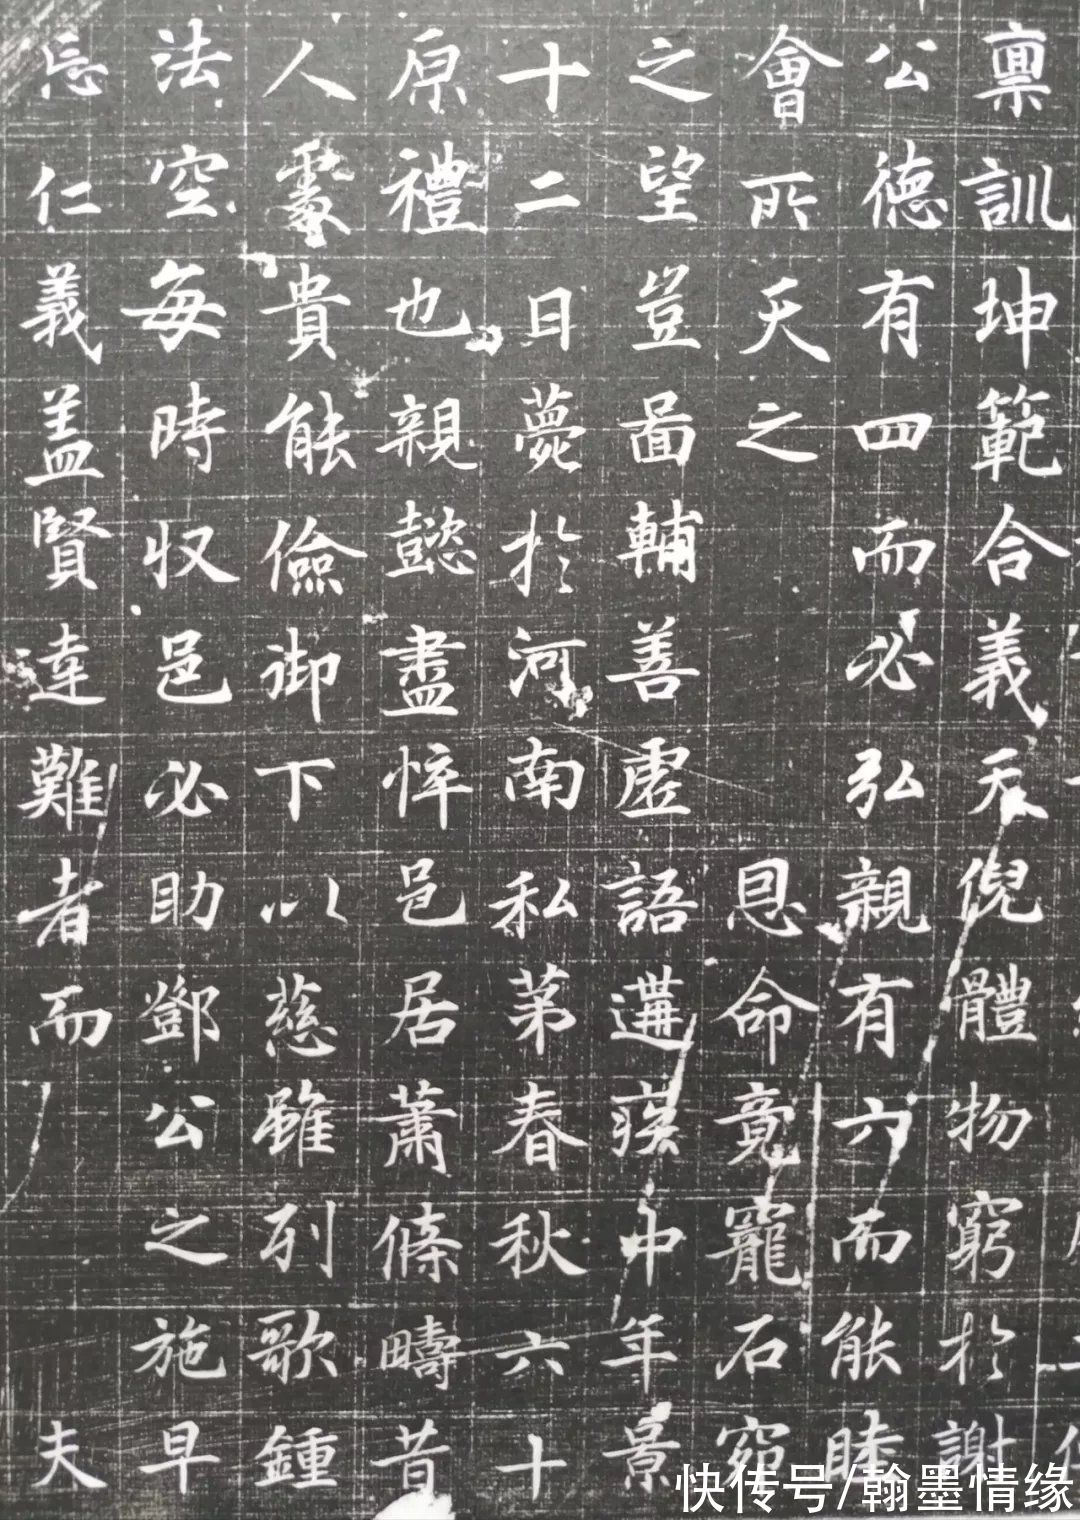 稟訓坤範合義天倪體物窮於謝
公德有四而必弘親有六而能睦
會所天之恩命竟寵石窌
之望豈啚輔善虛語遘疾中年景
十二日薨於河南私苐春秋六十
原禮也親懿盡悴邑居蕭條疇昔
人處貴能儉御下以慈雖列歌鍾
法空每時收邑必助鄧公之施早
忘仁義盖賢達難者而夫
快传号/翰墨情缘